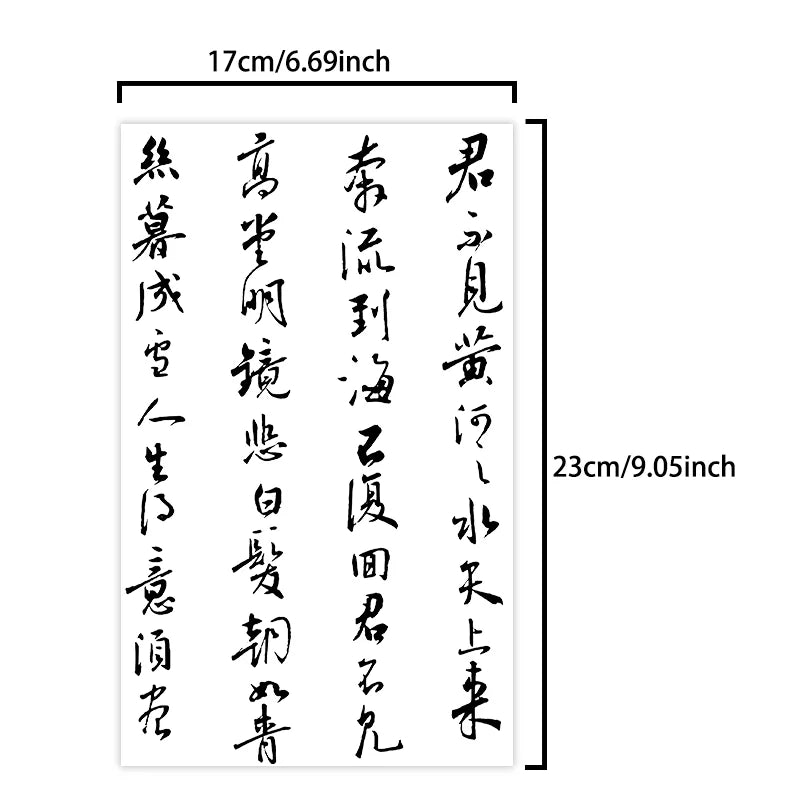 17cm/6.69inch
君不見黃河之水天上来
奔流到海不復回君不見
高堂明鏡悲白髮朝如青
絲暮成雪人生得意須盡
23cm/9.05inch